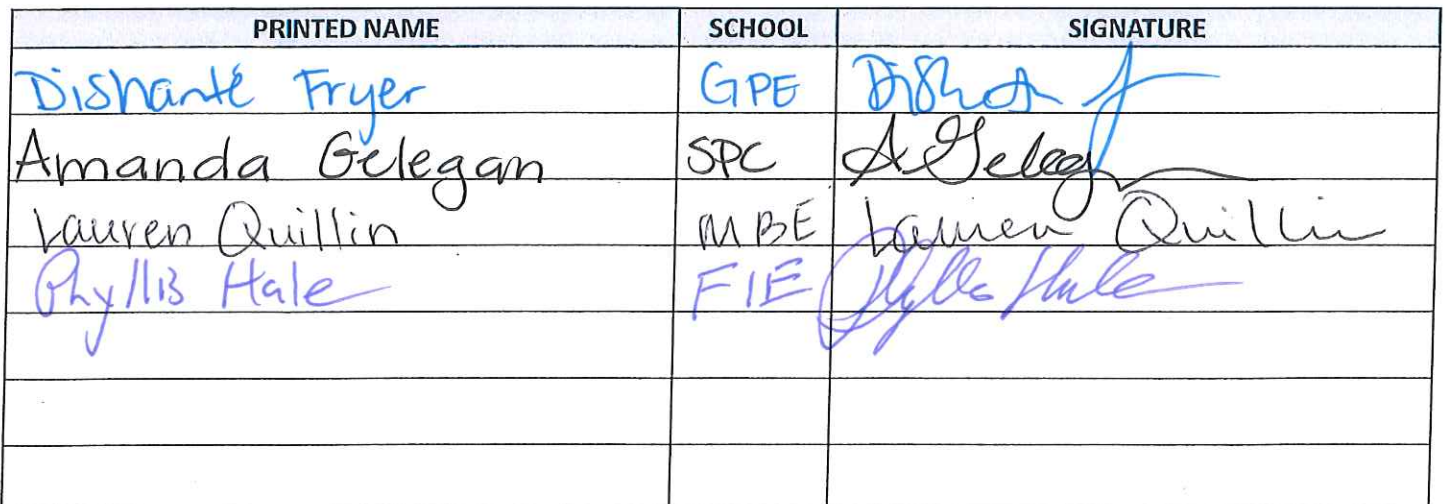 PRINTED NAME SCHOOL SIGNATURE
Dishanté Fryer GPE
Amanda Gelegan SPC A Geleg
Lauren Quillin MBE Lauren Quillin
Phyllis Hale FIE Phyllis Hale